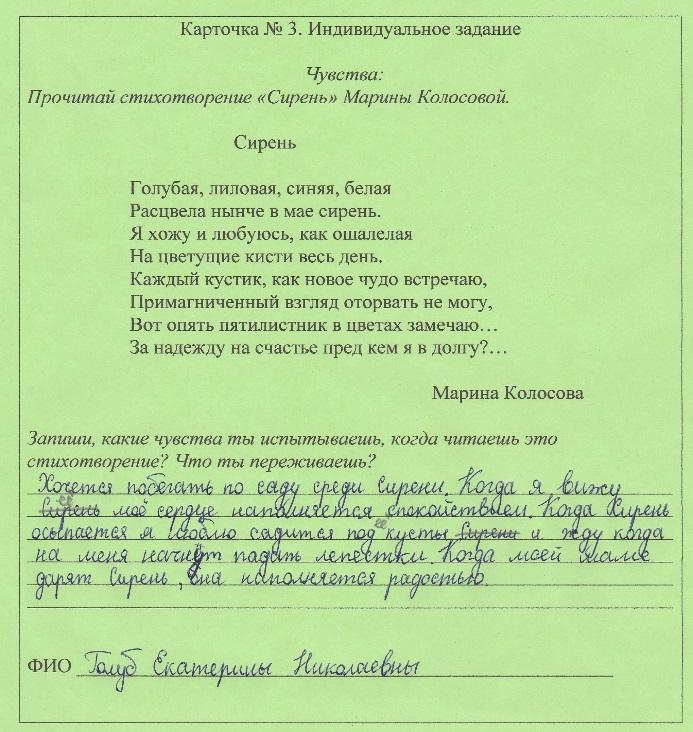 Карточка № 3. Индивидуальное задание
Чувства:
Прочитай стихотворение «Сирень» Марины Колосовой.
Сирень
Голубая, лиловая, синяя, белая
Расцвела нынче в мае сирень.
Я хожу и любуюсь, как ошалелая
На цветущие кисти весь день.
Каждый кустик, как новое чудо встречаю,
Примагниченный взгляд оторвать не могу,
Вот опять пятилистник в цветах замечаю…
За надежду на счастье пред кем я в долгу?…
Марина Колосова
Запиши, какие чувства ты испытываешь, когда читаешь это
стихотворение? Что ты переживаешь?
Хочется побегать по саду среди Сирени. Когда я вижу
её
Сирень моё сердце наполняется спокойствием. Когда Сирень
осыпается я люблю садится под её кусты Сирени и жду когда
на меня начнут падать лепестки. Когда моей маме
дарят Сирень, она наполняется радостью.
ФИО Голуб Екатерины Николаевны